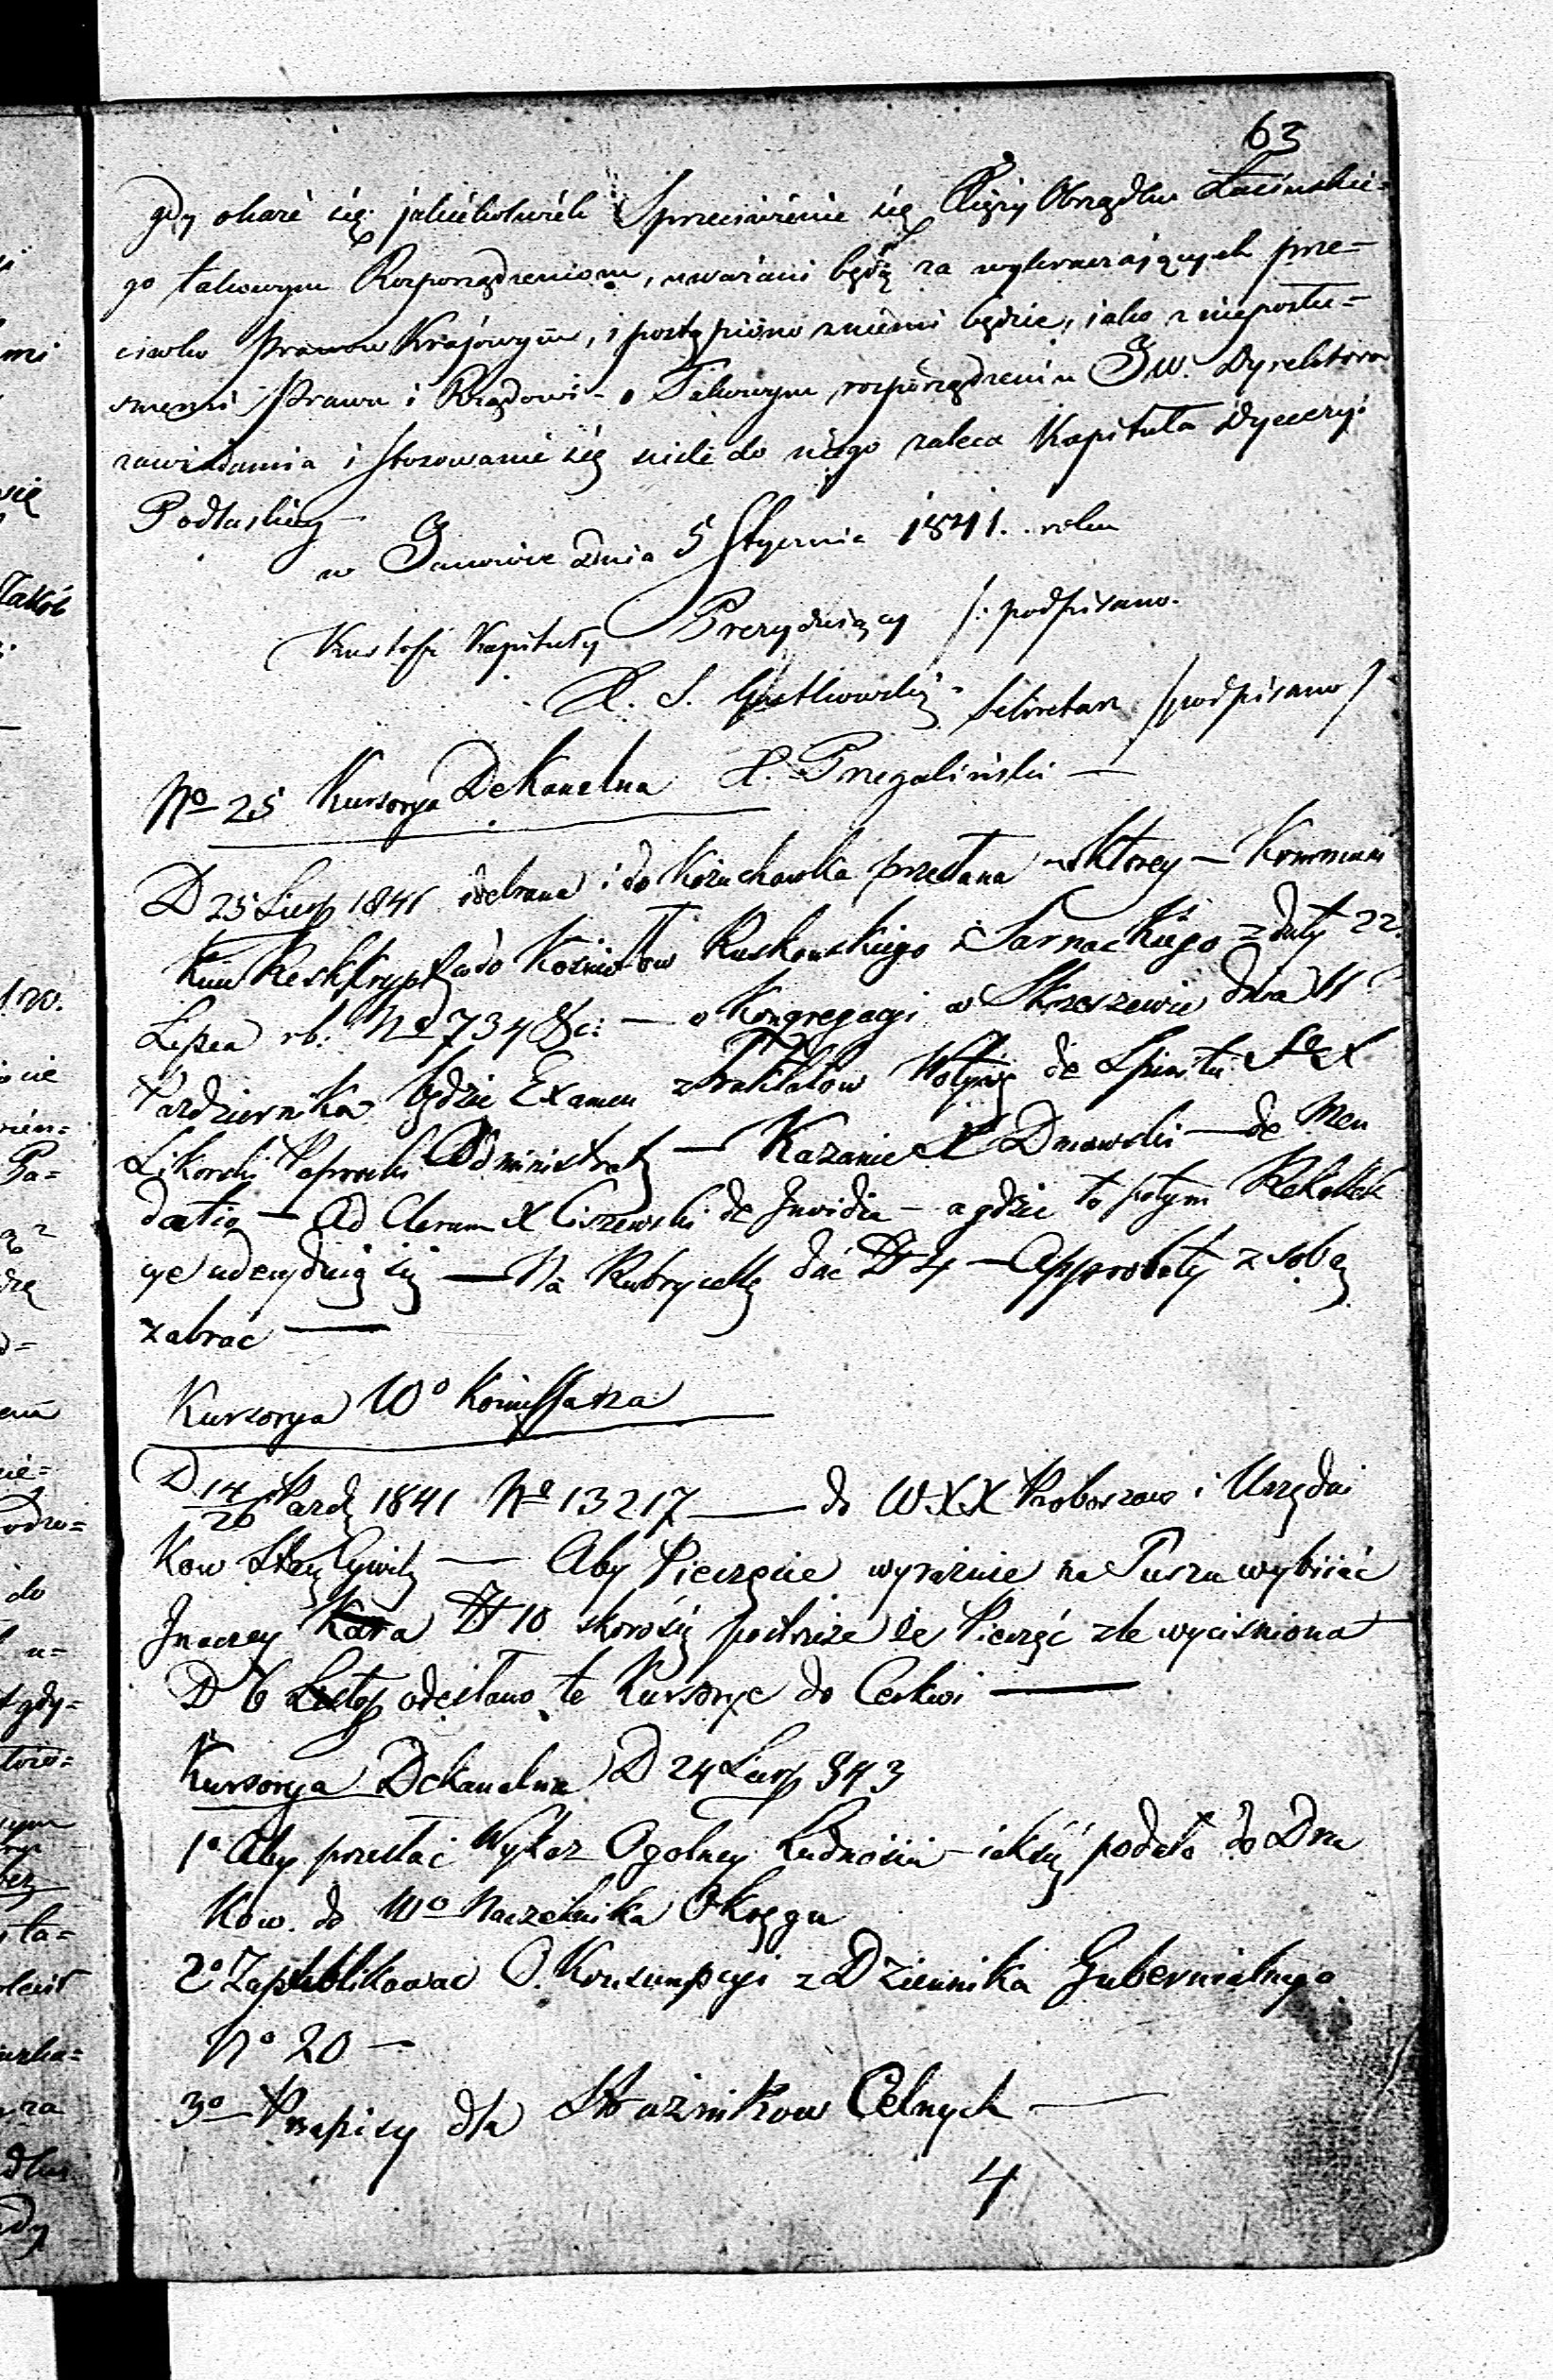 63
gdy okaże się jakiekolwiek Sprzeciwienie się Xięży Obrządku Łacińskie-
go takowym Rozporządzeniom, uważani będą za wykraczających prze-
ciwko Prawom Krajowym, i postąpiono z niemi będzie, iako z nieposłu-
sznemi Prawu i Rządowi - o Takowym rozporządzeniu JW. Dyrektora
zawiadamia i stosowanie się ściśle do niego zaleca Kapituła Dyecezyi
Podlaskiey
w Janowie dnia 5 Stycznia 1841. roku
Kustosz Kapituły Prezyduiący /: podpisano.
X. S. Gutkowski Sekretarz /podpisano/
No 25 Kursorya Dekanalna X. Przegaliński —
D 25 Sierp 1841 odebrana i do Kożuchowka przesłana w Ktorey — Kommuni
Kuie Reskrypt do Kościołow Ruskowskiego i Sarnackiego z daty 22
Lipca rb. No 734 &c: — o Kongregacyi w Skrzeszewie dnia 11
Pazdziernika będzie Examen z Traktatow Wotywę de Spiritu Sto X
Likorski Paprocki Administrat — Kazanie X Dmowski — de Men
datio — Ad Clerum X Ciszewski de Invidia — a gdzie to potym Rekollek
cye udecyduią się — Na Rubrycellę dać Zł 4 — Approbaty z sobą
zabrać —
Kursorya Wo Komissarza
D 14/26 Pazdz 1841 No 13217 — do WXX Proboszczow i Urzędni
kow Stanu Cywil — Aby Pieczęcie wyraźnie na Tuszu wybiiać
Inaczey Kara Zł 10 skoro się postrzeże że Pieczęć źle wyciśniona
D 6 Listop odesłano te Kursorye do Cerkwi —
Kursorya Dekanalna D 24 Sierp 843
1o Aby przesłać Wykaz Ogolney Ludności iak się podało do Dru
kow. do Wo Naczelnika Okręgu
2o Zapublikować O Konsumpcyi z Dziennika Gubernialnego
No 20 —
3o Przepisy dla Strażnikow Celnych —
4